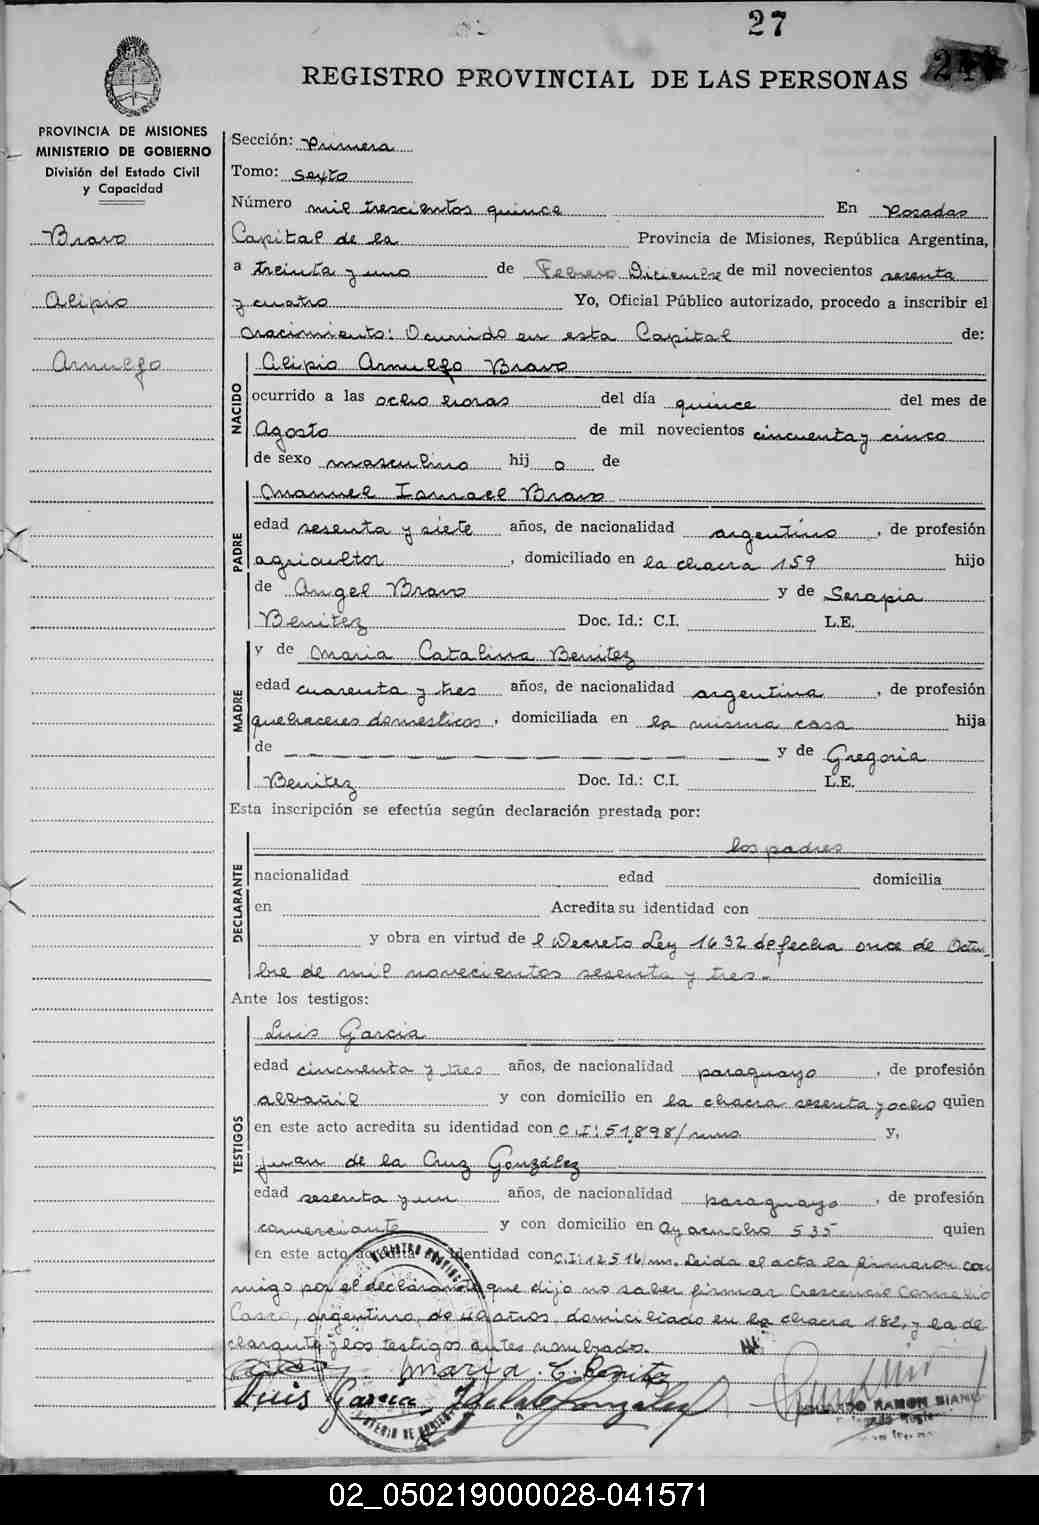 27
REGISTRO PROVINCIAL DE LAS PERSONAS
PROVINCIA DE MISIONES
MINISTERIO DE GOBIERNO
División del Estado Civil
y Capacidad
Bravo
Alipio
Arnulfo
Sección: Primera
Tomo: Sexto
Número mil trescientos quince En Posadas
Capital de la Provincia de Misiones, República Argentina,
a treinta y uno de Febrero Diciembre de mil novecientos sesenta
y cuatro Yo, Oficial Público autorizado, procedo a inscribir el
nacimiento: Ocurrido en esta Capital de:
NACIDO
Alipio Arnulfo Bravo
ocurrido a las ocho horas del día quince del mes de
Agosto de mil novecientos cincuenta y cinco
de sexo masculino hij o de
PADRE
Manuel Ismael Bravo
edad sesenta y siete años, de nacionalidad argentino, de profesión
agricultor, domiciliado en la chacra 159 hijo
de Angel Bravo y de Serapia
Benitez Doc. Id.: C.I. L.E.
MADRE
y de Maria Catalina Benitez
edad cuarenta y tres años, de nacionalidad argentina, de profesión
quehaceres domesticos, domiciliada en la misma casa hija
de y de Gregoria
Benitez Doc. Id.: C.I. L.E.
Esta inscripción se efectúa según declaración prestada por:
DECLARANTE
los padres
nacionalidad edad domicilia
en Acredita su identidad con
y obra en virtud de l Decreto Ley 1632 de fecha once de Octu-
bre de mil novecientos sesenta y tres.-
Ante los testigos:
TESTIGOS
Luis Garcia
edad cincuenta y tres años, de nacionalidad paraguayo, de profesión
albañil y con domicilio en la chacra sesenta y ocho quien
en este acto acredita su identidad con C.I: 51,898/ y,
Juan de la Cruz González
edad sesenta y un años, de nacionalidad paraguayo, de profesión
comerciante y con domicilio en Ayacucho 535 quien
en este acto acredita identidad con C.I: 12516/ Leida el acta la firmaron con
migo por el declarante que dijo no saber firmar Crescencio
argentino, de años, domiciliado en la chacra 182, y la de
clarante y los testigos antes nombrados.
Maria C. Benitez
Luis Garcia González
RAMON
02_050219000028-041571